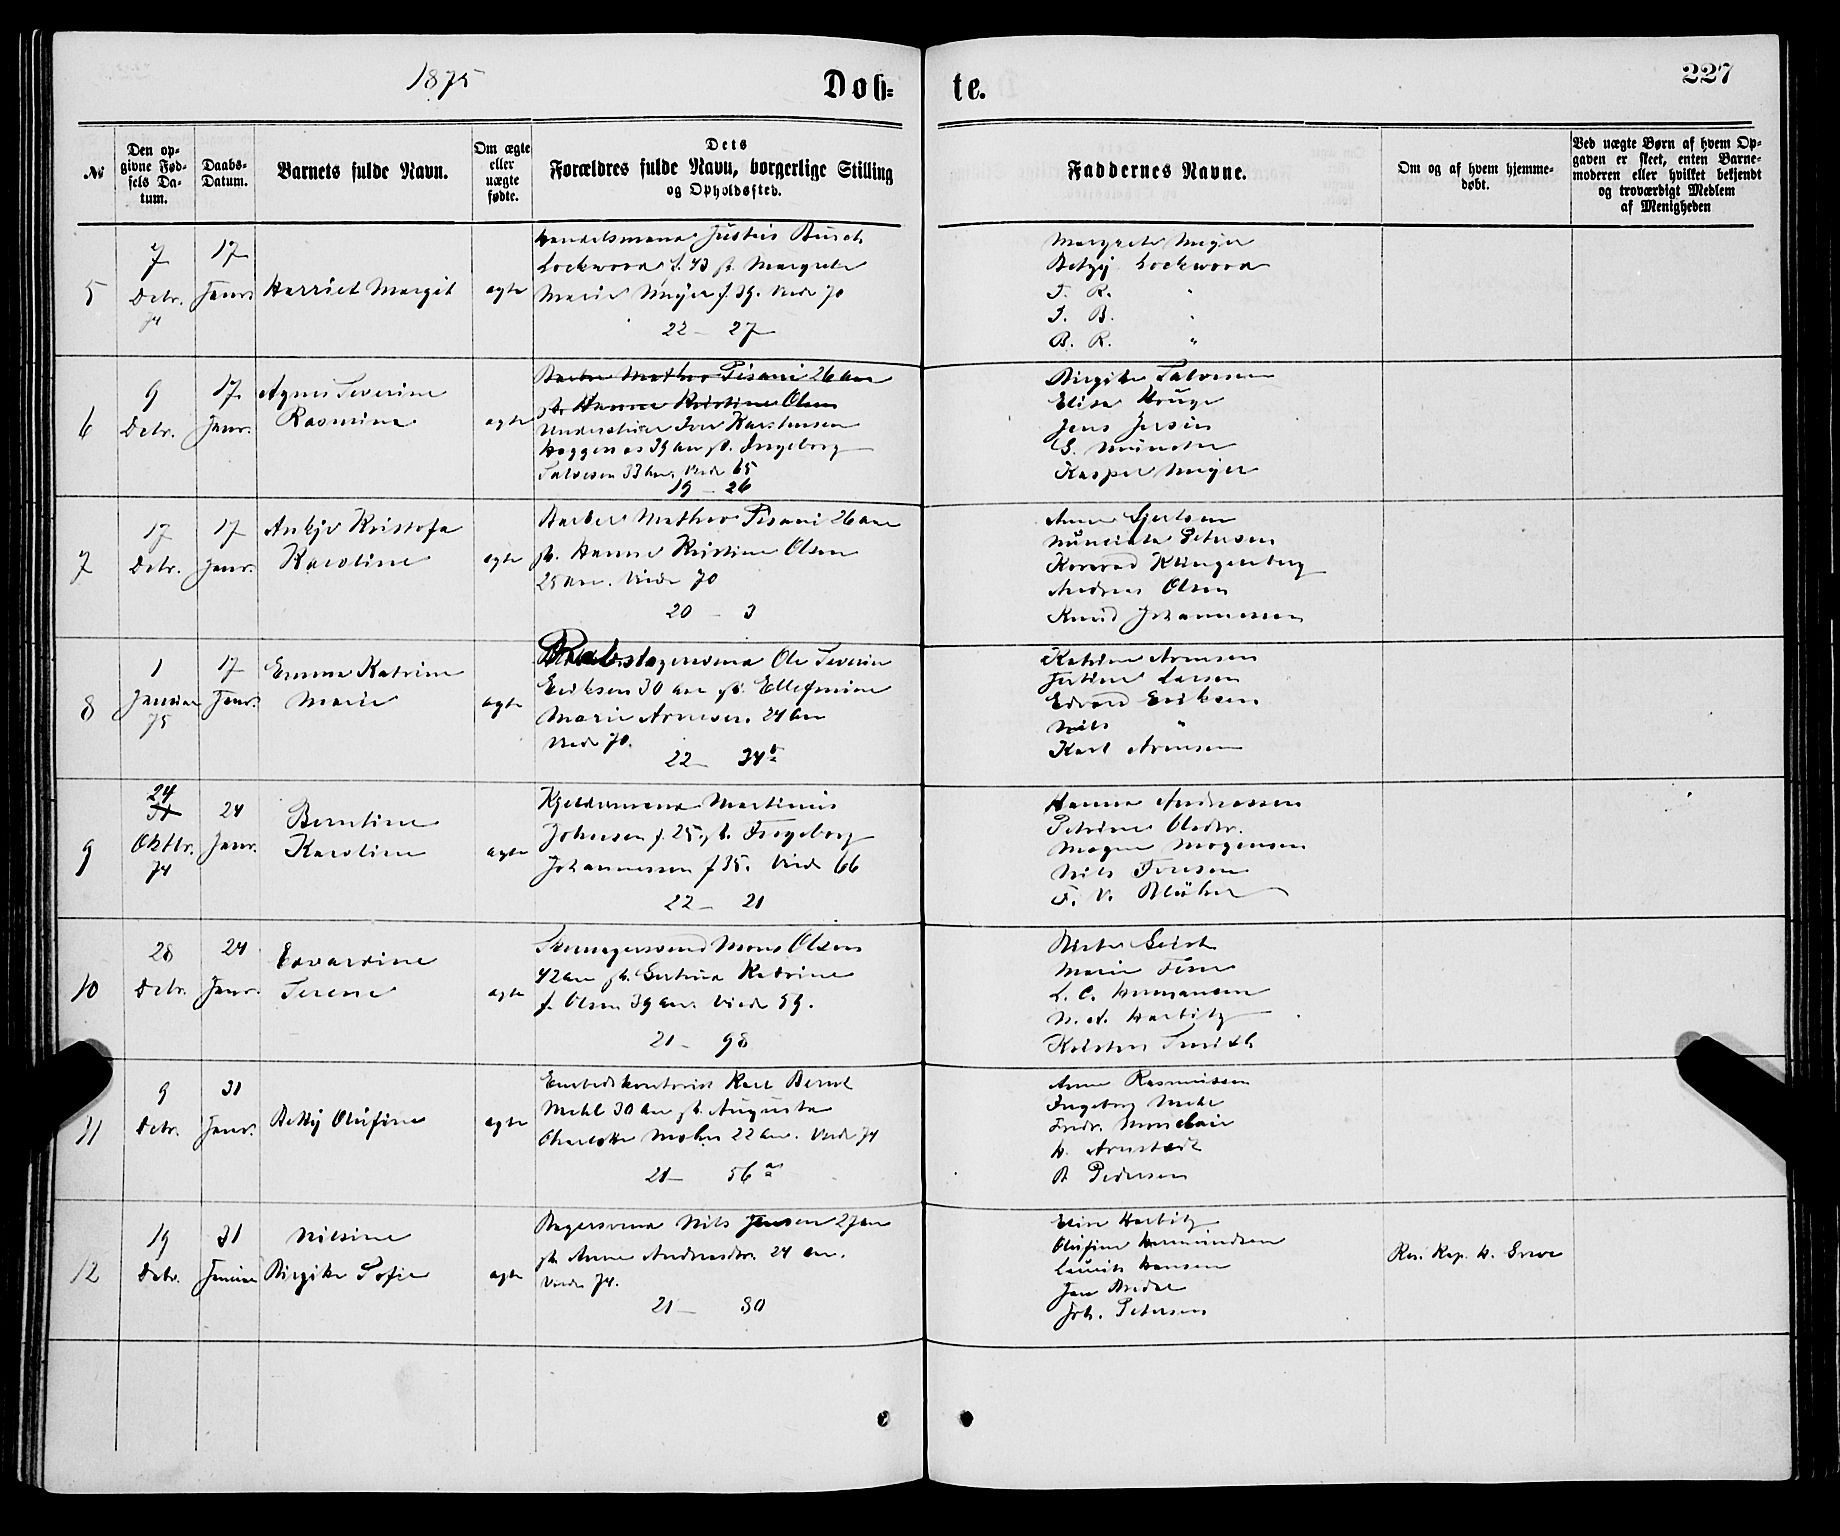 1875
Døb-
te.
227
№
Den op-
givne Fød-
sels Da-
tum.
Daabs-
Datum.
Barnets fulde Navn.
Om ægte
eller
uægte
fødte.
Dets
Forældres fulde Navn, borgerlige Stilling
og Opholdssted.
Faddernes Navne.
Om og af hvem hjemme-
døbt.
Ved uægte Børn af hvem Op-
gaven er skeet, enten Barne-
moderen eller hvilket bekjendt
og troværdigt Medlem
af Menigheden
5
7
Decbr.
74
17
Janr.
Harriet Margit
ægte
Handelsmand Justus Busch
Lockwood f. 43 gt. Margrete
Marie Meyer f. 39. Viede 70
22 - 27
Margrete Meyer
Betzy Lockwood
J. R. "
J. B. "
B. R. "
6
9
Decbr.
17
Janr.
Agnes Severine
Rasmine
ægte
Barber Matheo Pisani 26 Aar
gt. Hanne Kristine Olsen
Iver Karstensen
Haggenæs 39 Aar gt. Ingeborg
Salvesen 33 Aar, Viede 65
19 - 26
Birgitte Salvesen
Elisa Hauge
Jens Jersin
G. Münster
Kasper Meyer
7
17
Decbr.
17
Janr.
Ankjo Kristofa
Karoline
ægte
Barber Matheo Pisani 26 Aar
gt. Hanne Kristine Olsen
25 Aar. Viede 70
20 - 3
Anna Gjertsen
Petersen
Konrad Klingenberg
Andreas Olsen
Knud Johannessen
8
1
Januar
75
17
Janr.
Emma Katrine
Marie
ægte
Ole Severin
Eriksen 30 Aar gt. Ellefmine
Marie Arnesen. 24 Aar
Viede 70.
22 - 34 b
Katrine Arnesen
Larsen
Edvard Eriksen
Nils "
Karl Arnesen
9
24
31
Oktbr.
74
24
Janr.
Berntine
Karoline
ægte
Kjeldermand Martinus
Johnsen f. 25. gt. Ingeborg
Johannessen f 35. Viede 66
22 - 21
Hanna Andreassen
Petrine Olsdtr.
Mogen Mogensen
Nils Iversen
F. V. Blüher
10
28
Decbr.
24
Janr.
Edvardine
Serene
ægte
Mons Olsen
42 Aar gt. Gertrud Katrine
f. Olsen 39 Aar. Viede 59.
21 - 98
Marie
L. C. Hermansen
N. A. Harbitz
Kristen Smith
11
9
Decbr.
31
Janr.
Betty Olufine
ægte
Embedskontorist Karl Bernt
Mehl 30 Aar gt. Augusta
Charlotte Mohn 22 Aar. Viede 74
21 - 56 a
Anna Rasmussen
Ingeborg Mehl
Fredr. Monclair
H. Arnstedt
B Pedersen
12
19
Decbr.
31
Januar
Nilsine
Birgitte Sofie
ægte
Bagersvend Nils Jensen 27 Aar
gt. Anne Andreasdtr. 24 Aar.
Viede 74.
21 - 80
Elise Harbitz
Olufine Hermundsen
Lauritz Hansen
Jan Bredal
Joh. Petersen
Res. Kap. H. Greve